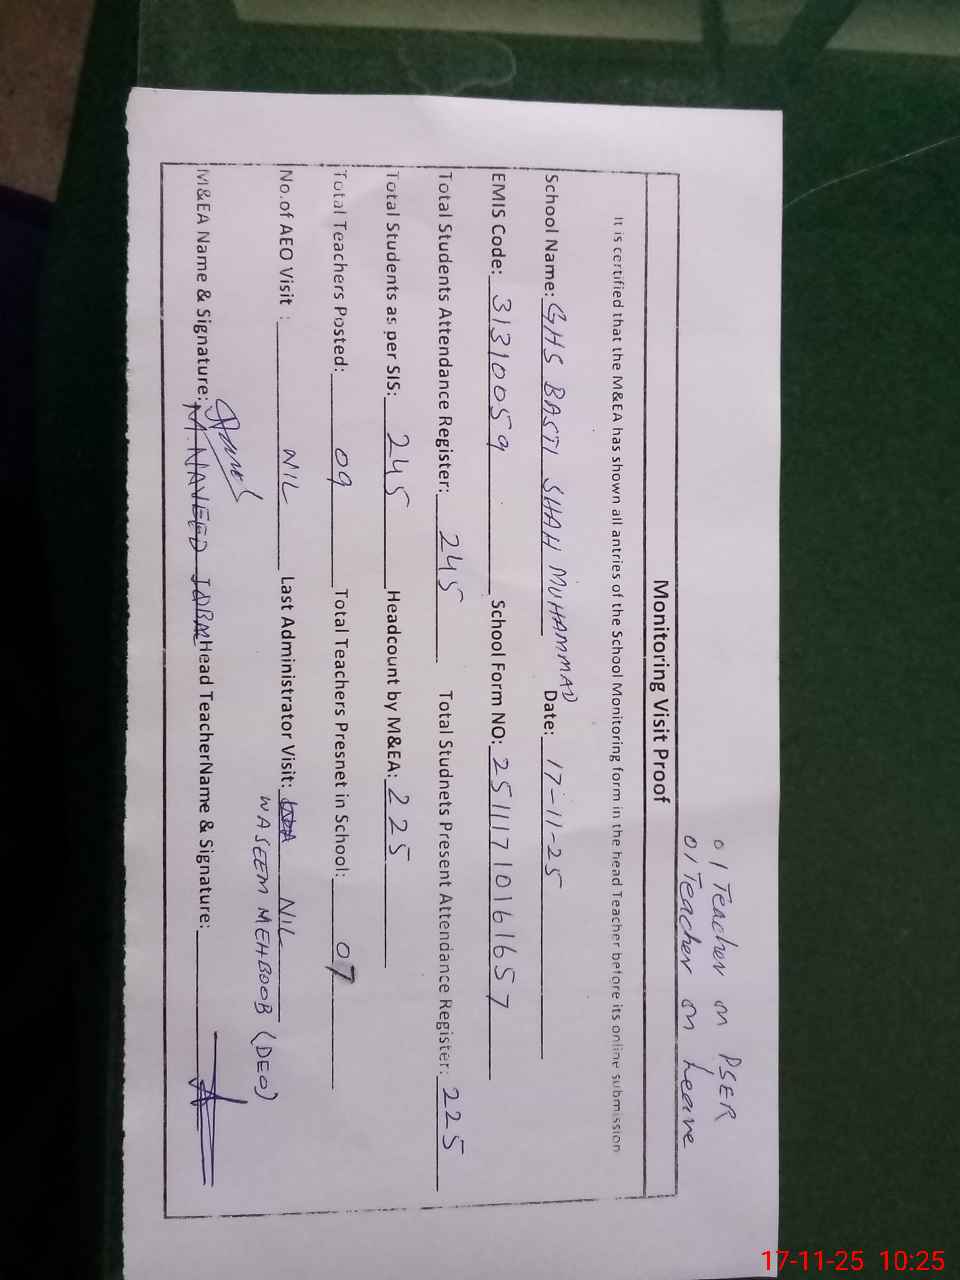 01 Teacher on PSER
01 Teacher on Leave
Monitoring Visit Proof
It is certified that the M&EA has shown all antries of the School Monitoring form in the head Teacher before its online submission
School Name: GHS BASTI SHAH MUHAMMAD Date: 17-11-25
EMIS Code: 31310059 School Form NO: 25111710161657
Total Students Attendance Register: 245 Total Studnets Present Attendance Register: 225
Total Students as per SIS: 245 Headcount by M&EA: 225
Total Teachers Posted: 09 Total Teachers Presnet in School: 07
No.of AEO Visit : NIL Last Administrator Visit: NIL
WASEEM MEHBOOB (DEO)
M&EA Name & Signature: M.NAVEED IQBAL Head TeacherName & Signature:
17-11-25 10:25